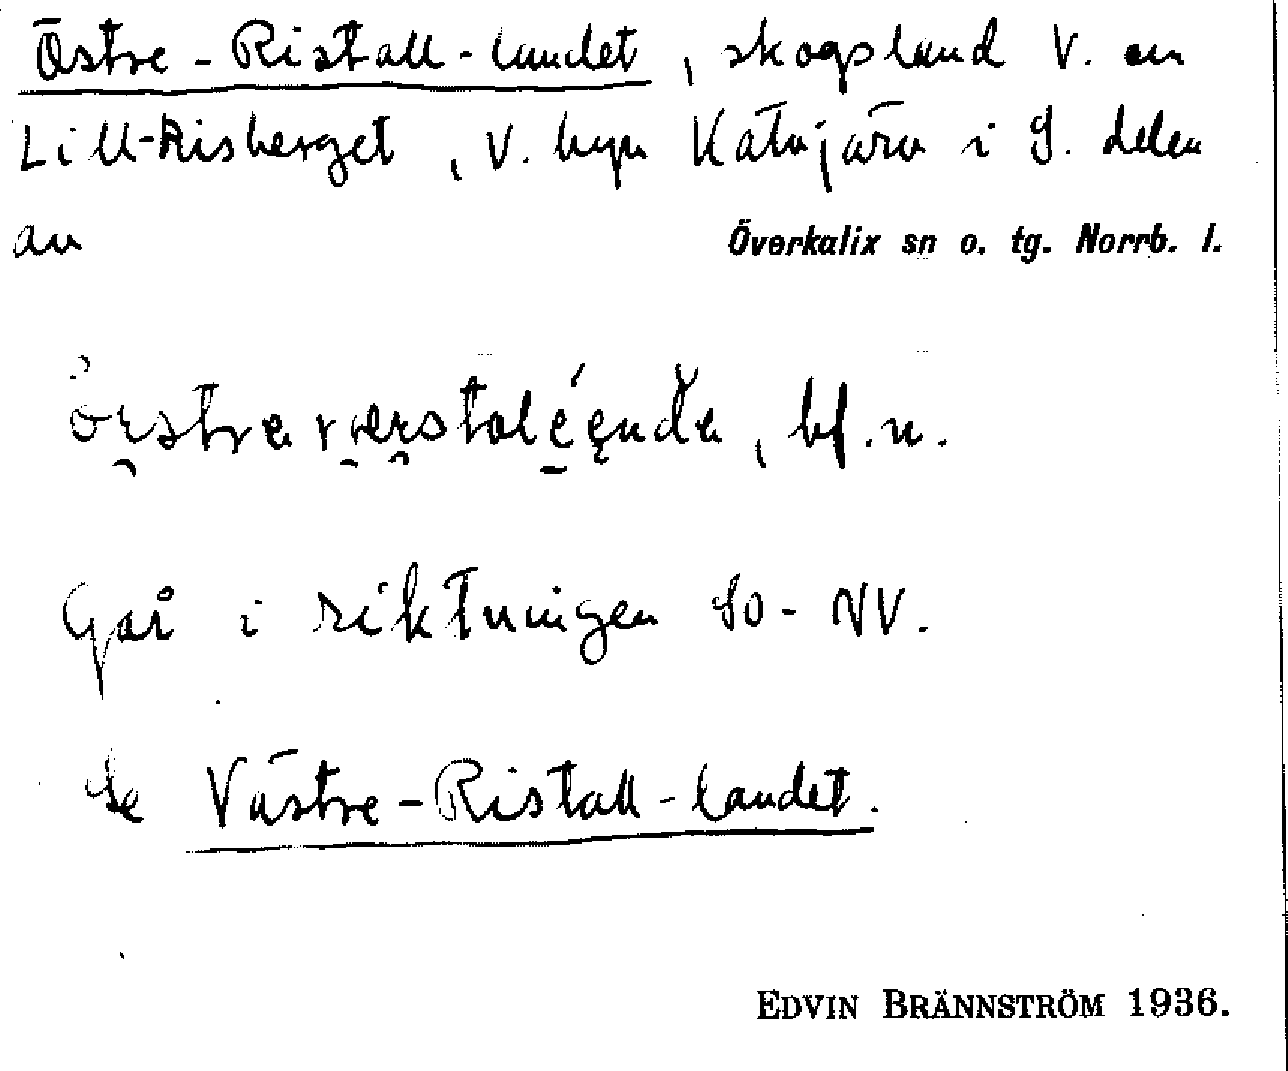 Östre-Ristall-landet, skogsland V. om
Lill-Risberget, V. byn Kätujärv i S. delen
av Överkalix sn o. tg. Norrb. l.
bf.n.
Går i riktningen SO-NV.
Se Västre-Ristall-landet.
EDVIN BRÄNNSTRÖM 1936.